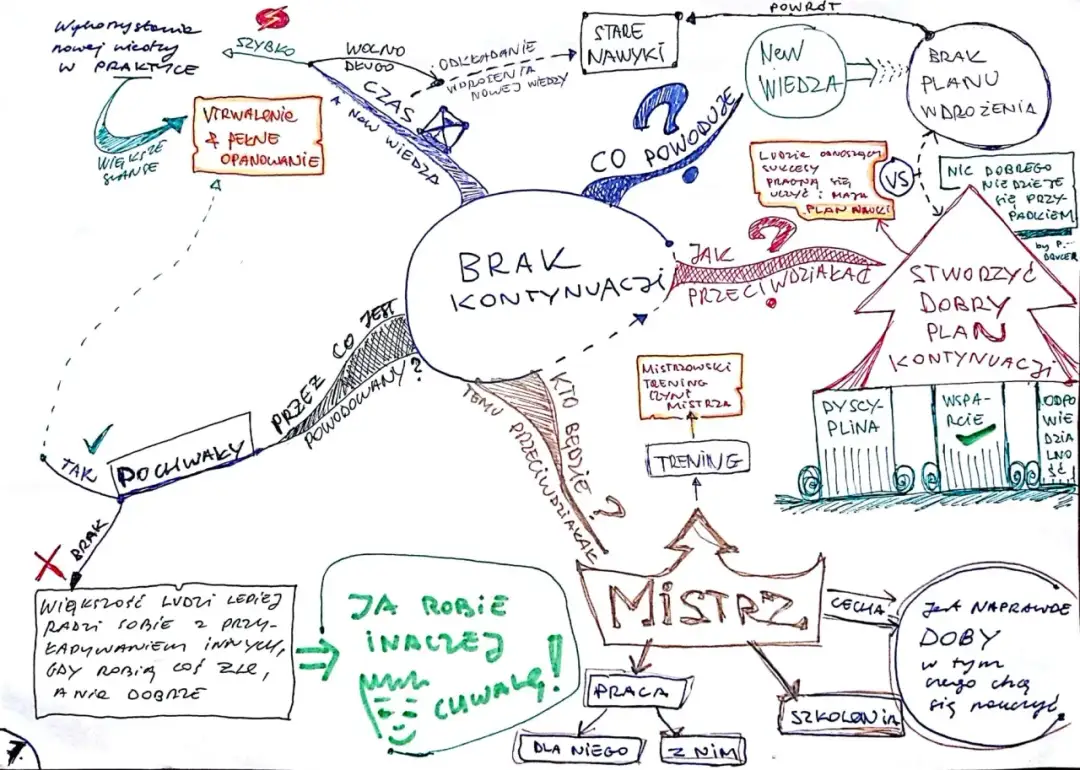 Wykorzystanie
nowej wiedzy
W PRAKTYCE
WIĘKSZE
SZANSE
UTRWALENIE
& PEŁNE
OPANOWANIE
SZYBKO
WOLNO
DŁUGO
ODKŁADANIE
WDROŻENIA
NOWEJ WIEDZY
CZAS
A NEW WIEDZA
STARE
NAWYKI
POWRÓT
NEW
WIEDZA
BRAK
PLANU
WDROŻENIA
?
CO POWODUJE
LUDZIE ODNOSZĄCY
SUKCESY
PRAGNĄ SIĘ
UCZYĆ I MAJĄ
PLAN NAUKI
VS
NIC DOBREGO
NIE DZIEJE
SIĘ PRZY-
PADKIEM
by P.
BRAK
KONTYNUACJI
JAK ?
PRZECIWDZIAŁAĆ
STWORZYĆ
DOBRY
PLAN
KONTYNUACJI
DYSCY-
PLINA
WSPA-
RCIE
ODPO
WIE
DZIA
LNO
ŚĆ
PRZEZ CO JEST
POWODOWANY?
POCHWAŁY
TAK
BRAK
WIĘKSZOŚĆ LUDZI LEPIEJ
RADZI SOBIE Z PRZY-
ŁAPYWANIEM INNYCH,
GDY ROBIĄ COŚ ZLE,
A NIE DOBRZE
JA ROBIE
INACZEJ
CHWALĘ!
KTO BĘDZIE ?
TEMU PRZECIWDZIAŁAŁ
MISTRZOWSKI
TRENING
CZYNI
MISTRZA
TRENING
MISTRZ
PRACA
DLA NIEGO
Z NIM
SZKOLENIA
CECHA
JEST NAPRAWDE
DOBY
w tym
czego chcą
się nauczyć
7.